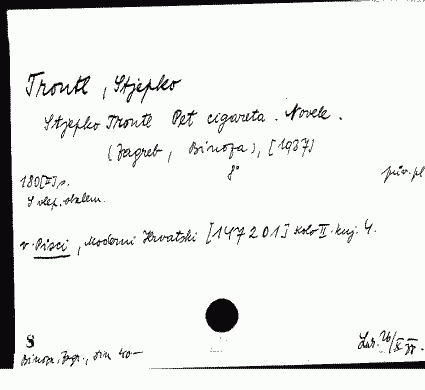 Trontl, Stjepko
Stjepko Trontl Pet cigareta. Novele.
(Zagreb, Binoza), [1937]
180 [II] s. 8° priv. pl
S
v. Pisci, Moderni Hrvatski [147201] Kolo II. knj. 4.
S
Binoza, Zagr., 40-